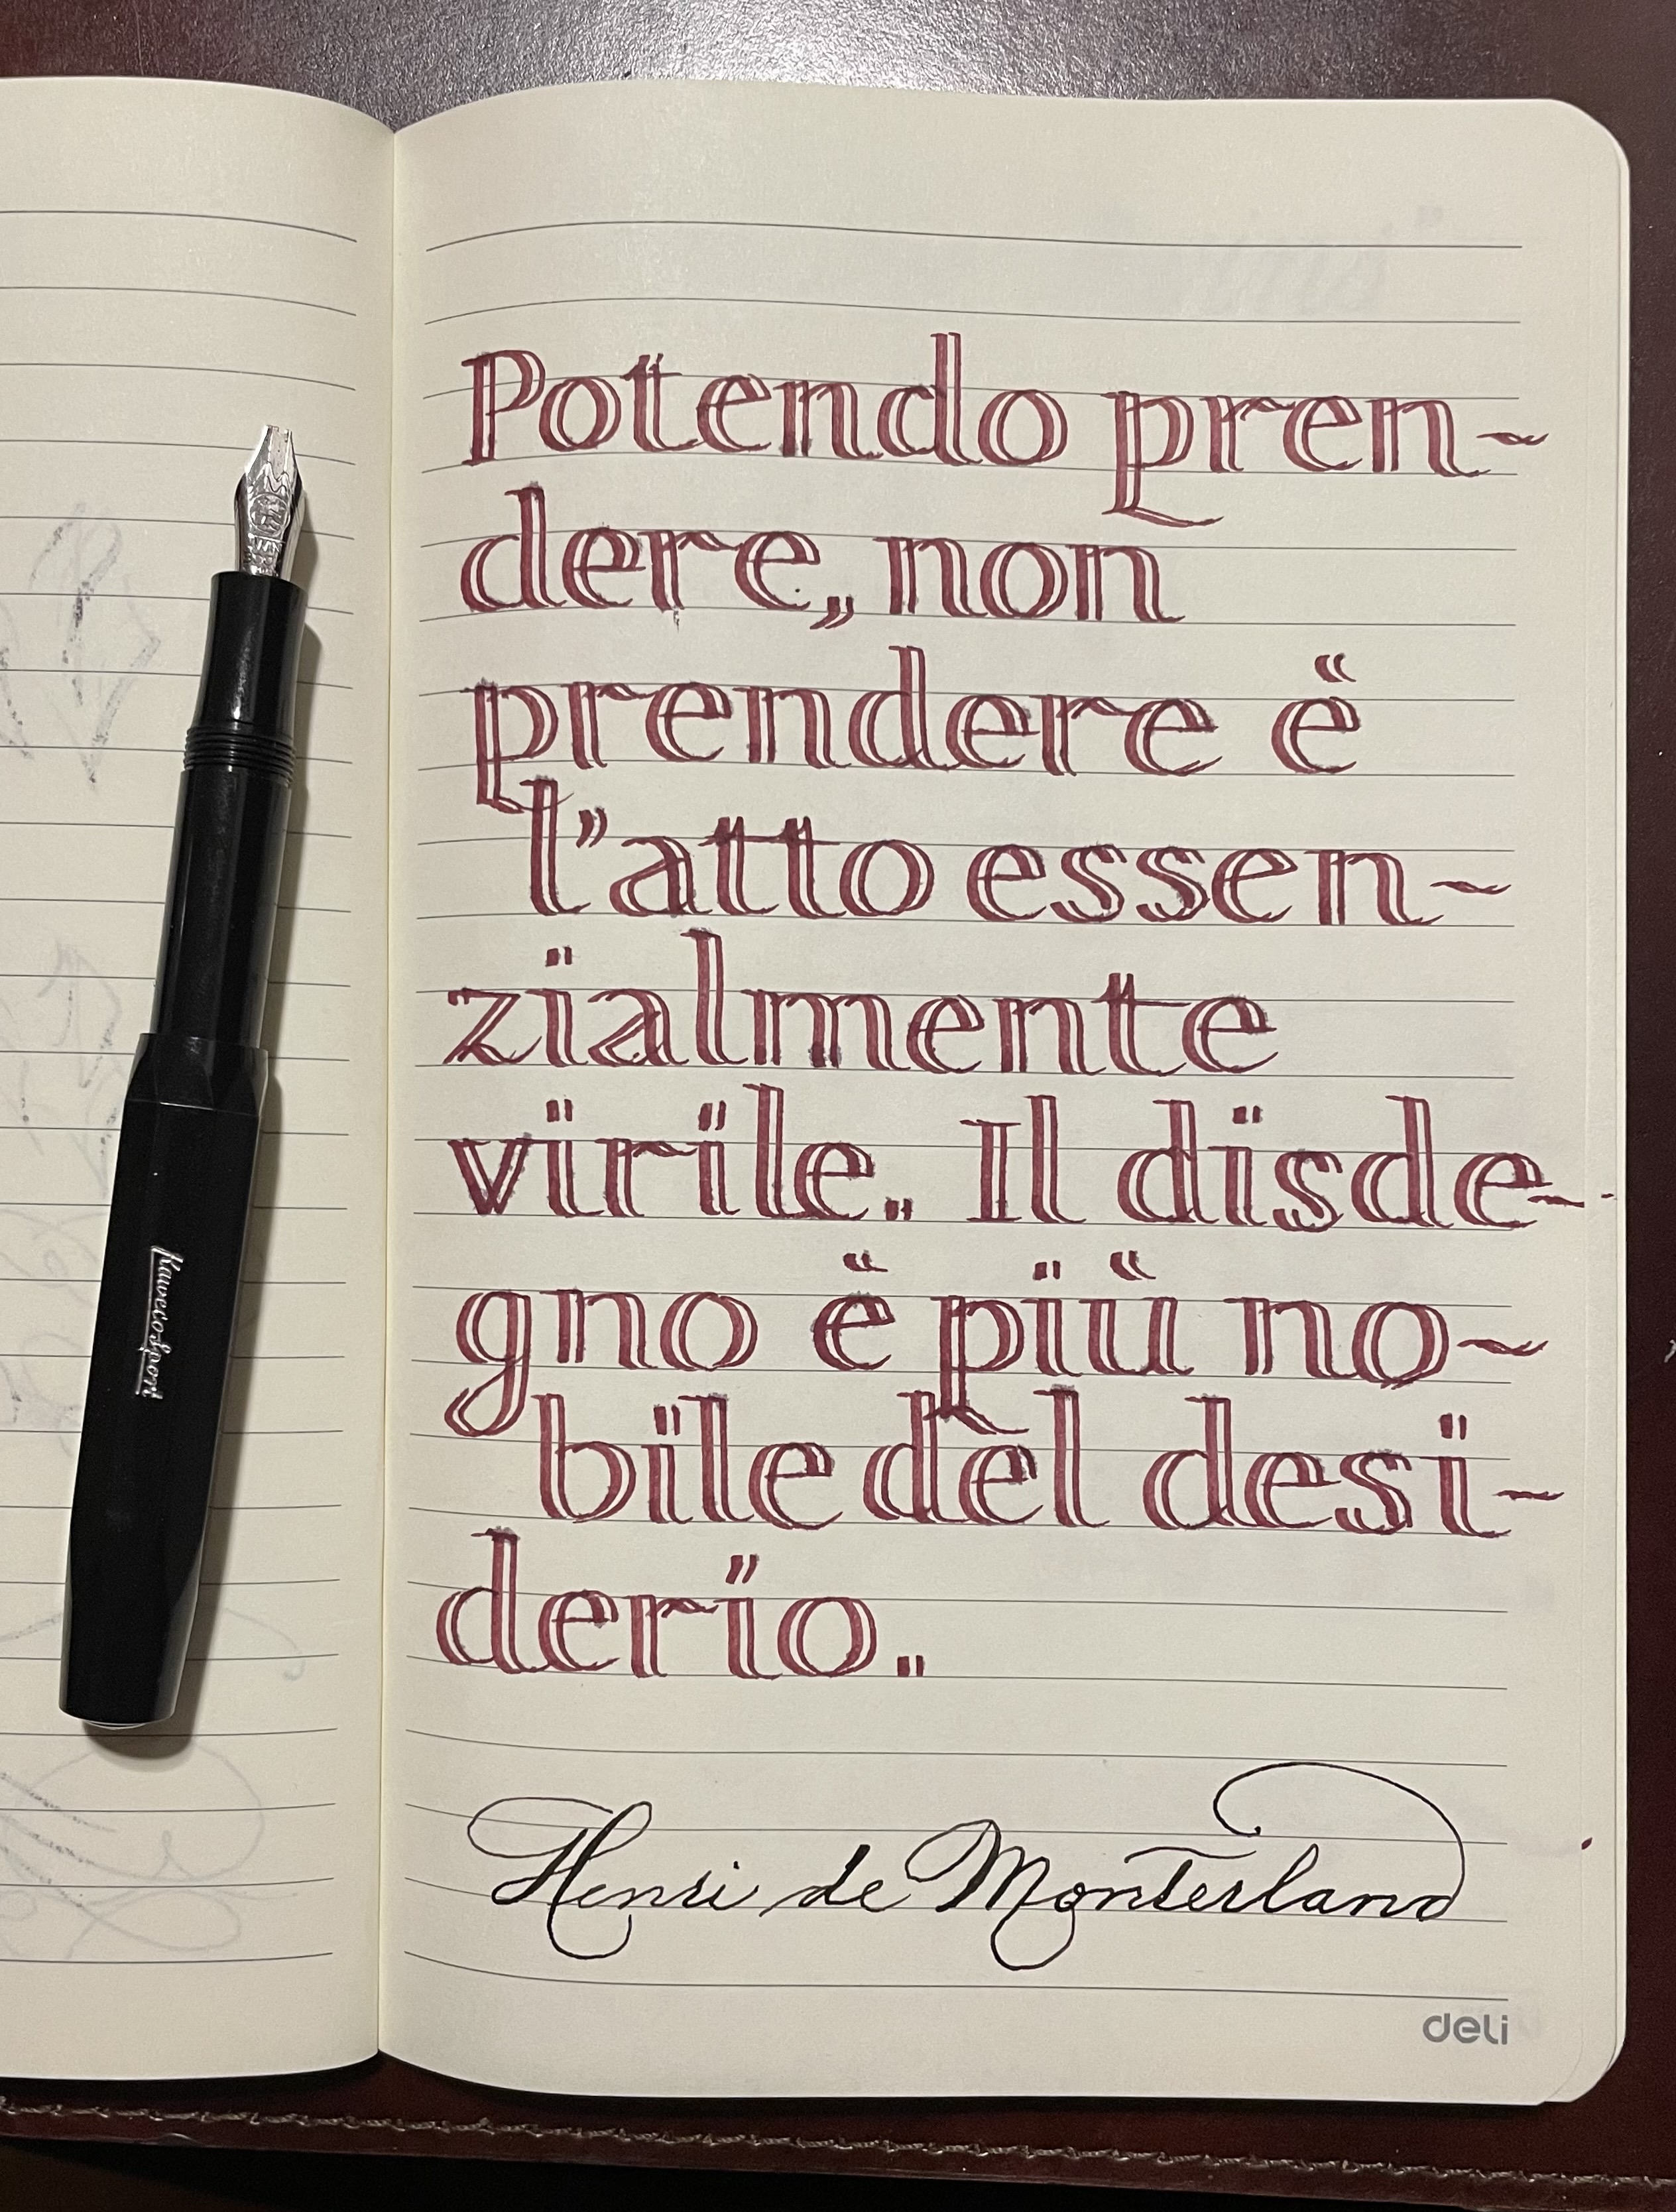 Potendo pren-
dere, non
prendere è
l'atto essen-
zialmente
virile. Il disde-
gno è più no-
bile del desi-
derio.
Henri de Monterland
deli
Kaweco Sport